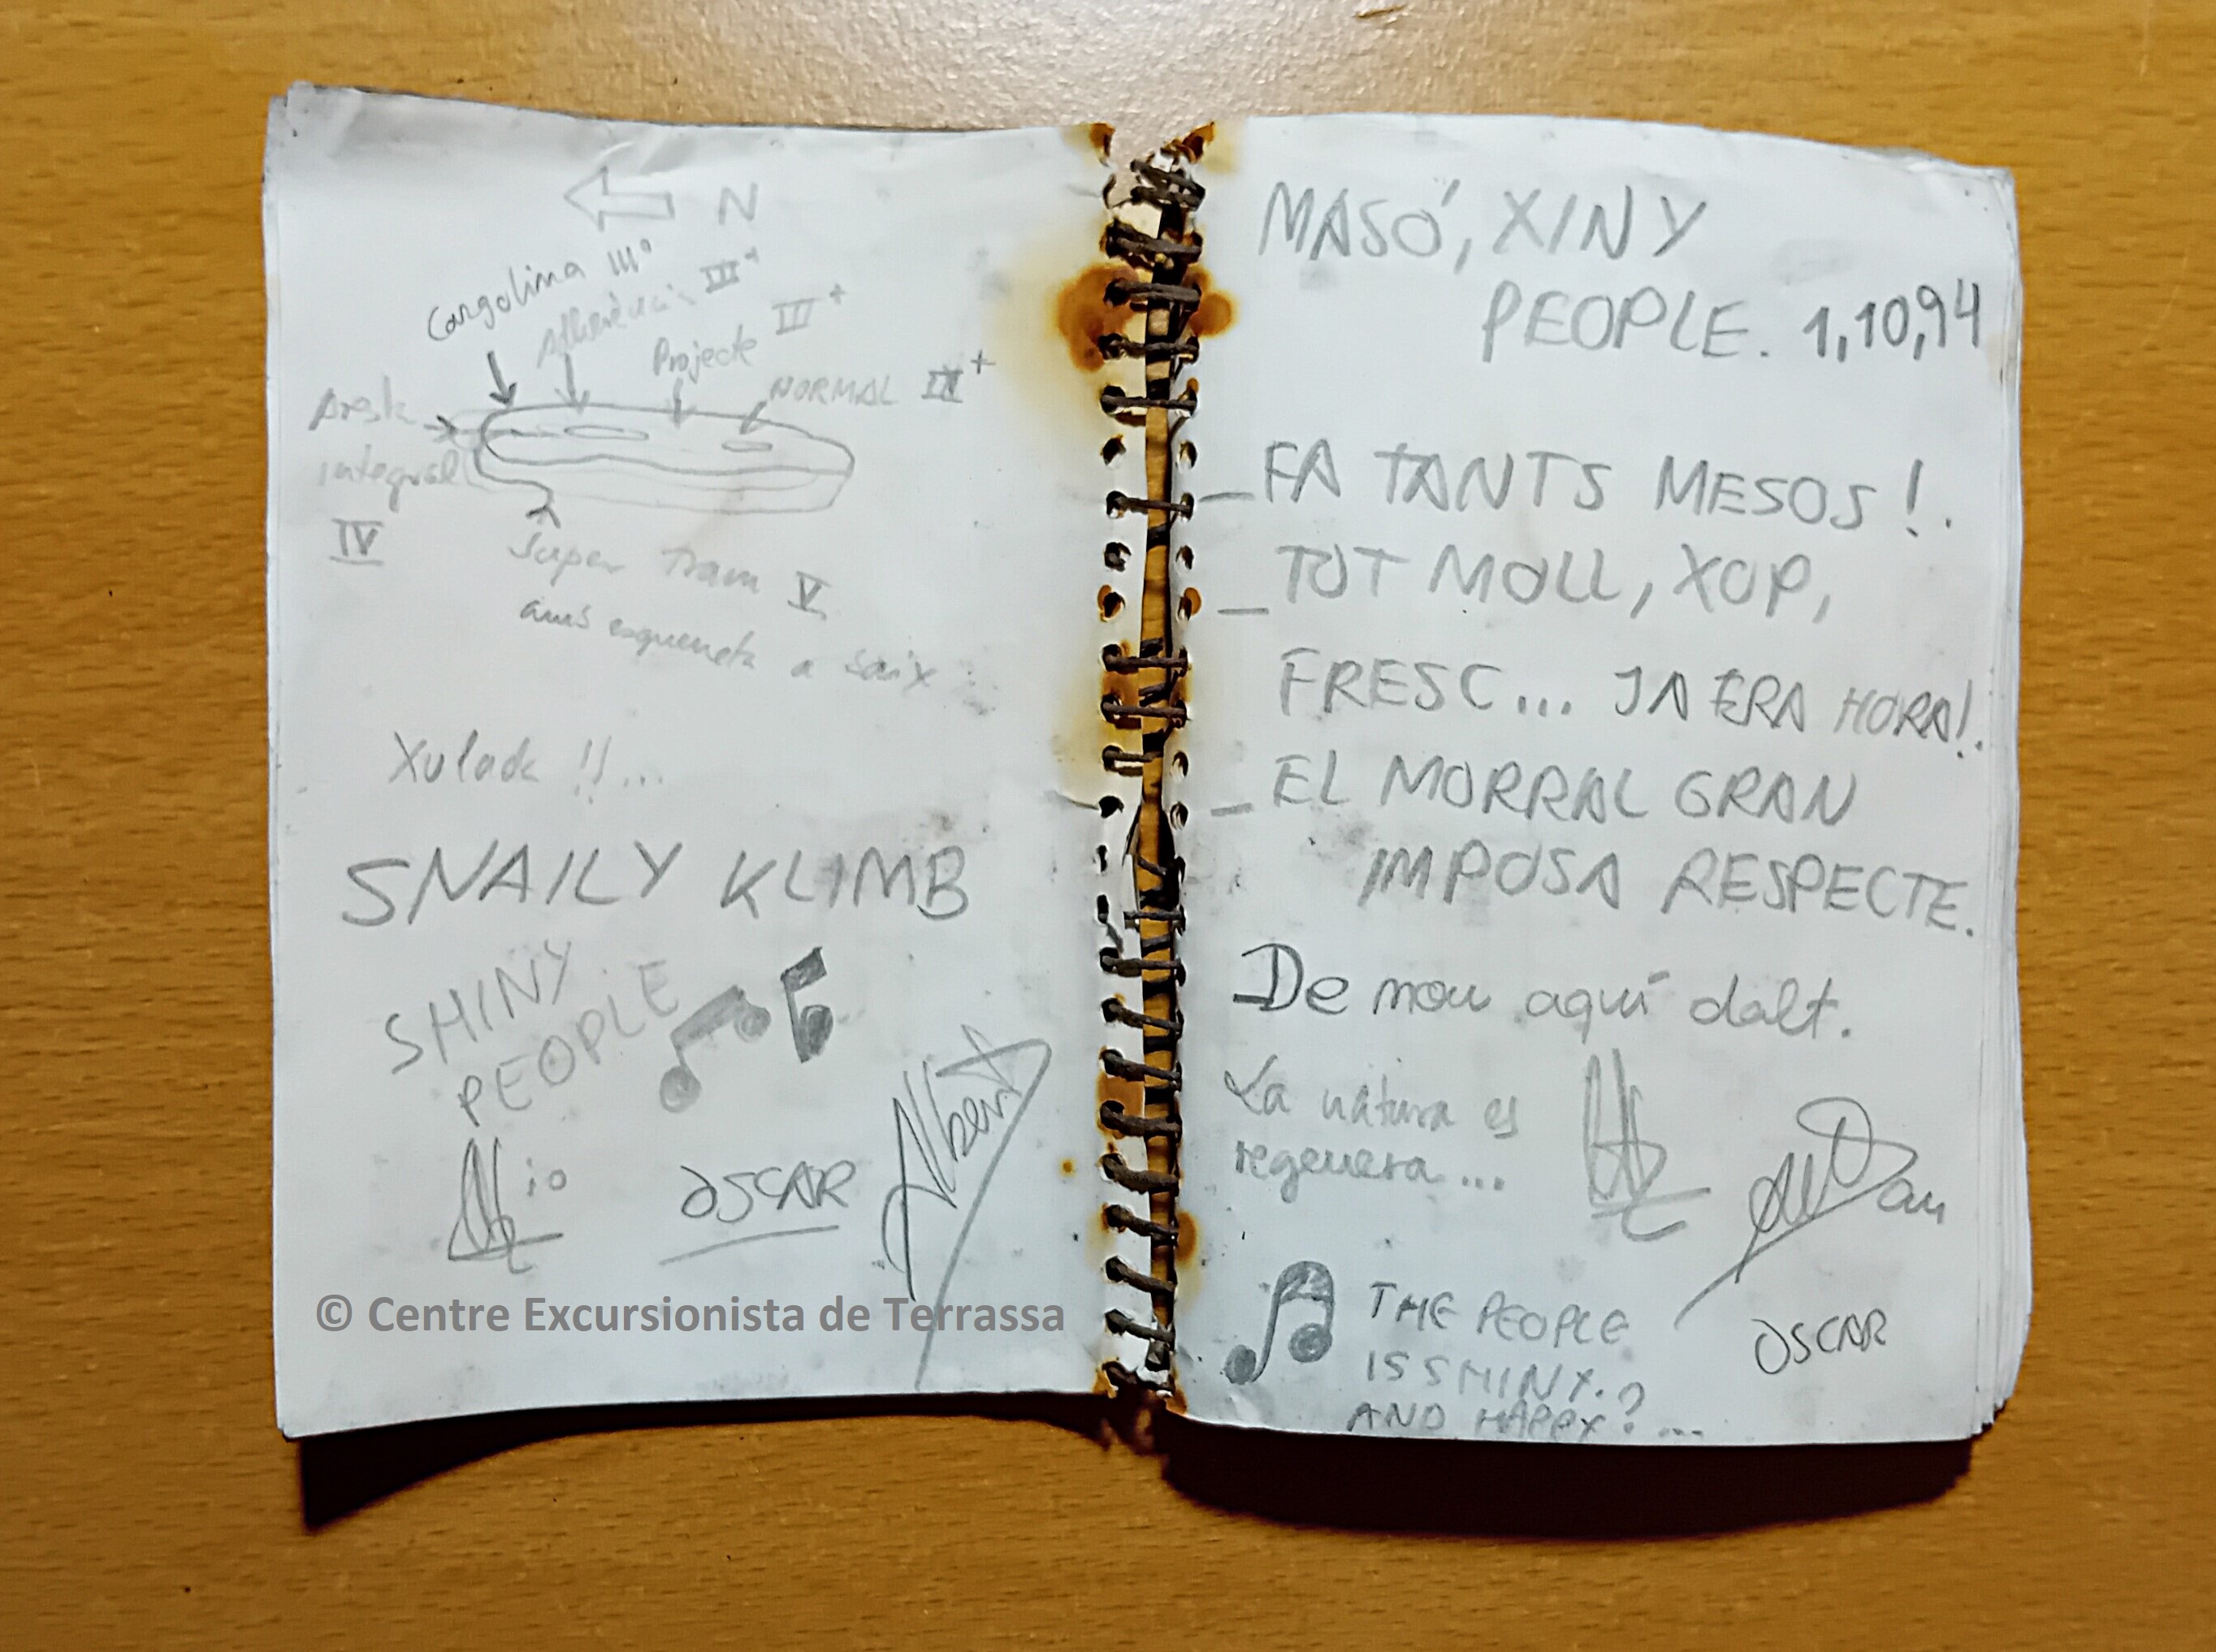 N
Cargolina III°
Adherència III+
Projecte III+
NORMAL III+
Aresta
integral
IV
Super Tram V
amb esqueneta a saix
Xulada !!...
SNAILY KLIMB
SHINY
PEOPLE
io
OSCAR
Albert
© Centre Excursionista de Terrassa
MASÓ, XINY
PEOPLE. 1,10,94
_ FA TANTS MESOS!.
_ TOT MOLL, XOP,
FRESC... JA ERA HORA!.
_ EL MORRAL GRAN
IMPOSA RESPECTE.
De nou aquí dalt.
La natura es
regenera...
Dan
OSCAR
THE PEOPLE
IS SHINY.?
AND HAPPY?...